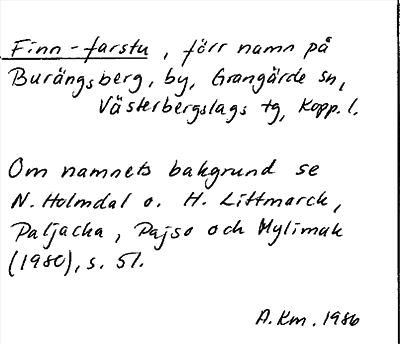 Finn-farstu, förr namn på
Burängsberg, by, Grangärde sn,
Västerbergslags tg, Kopp. l.
Om namnets bakgrund se
N. Holmdal o. H. Littmarck,
Paljacka, Pajso och Mylimak
(1980), s. 51.
A. Km. 1986